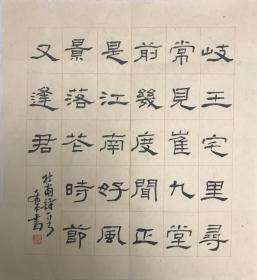 岐王宅里尋
常見崔九堂
前幾度聞正
是江南好風
景落花時節
又逢君
杜甫詩
書